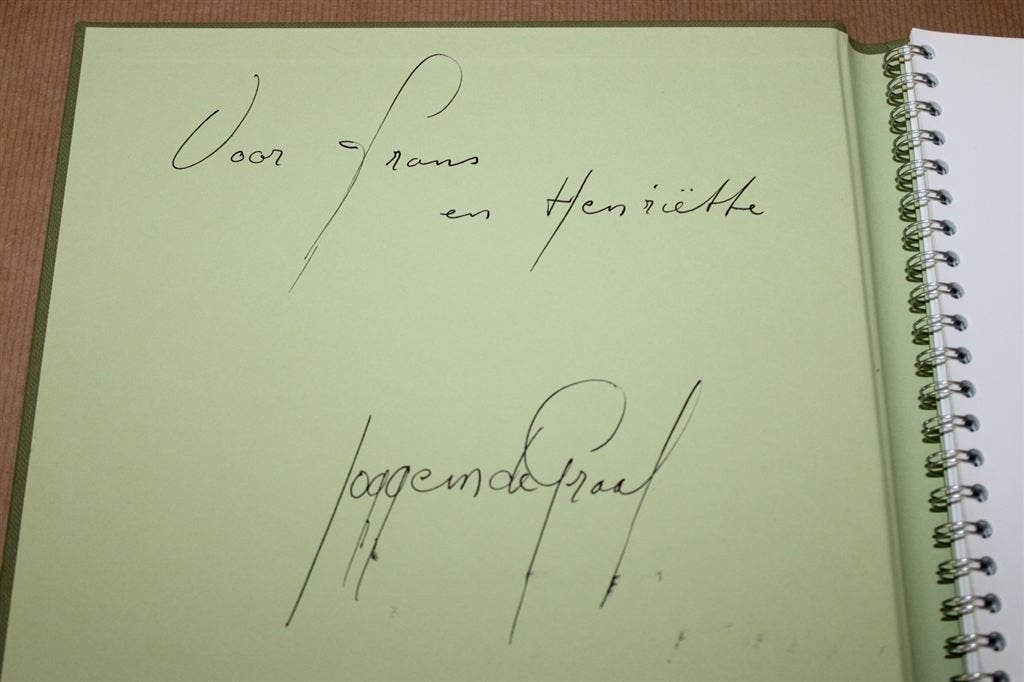 Voor Frans
en Henriëtte
Joggem de Graaf